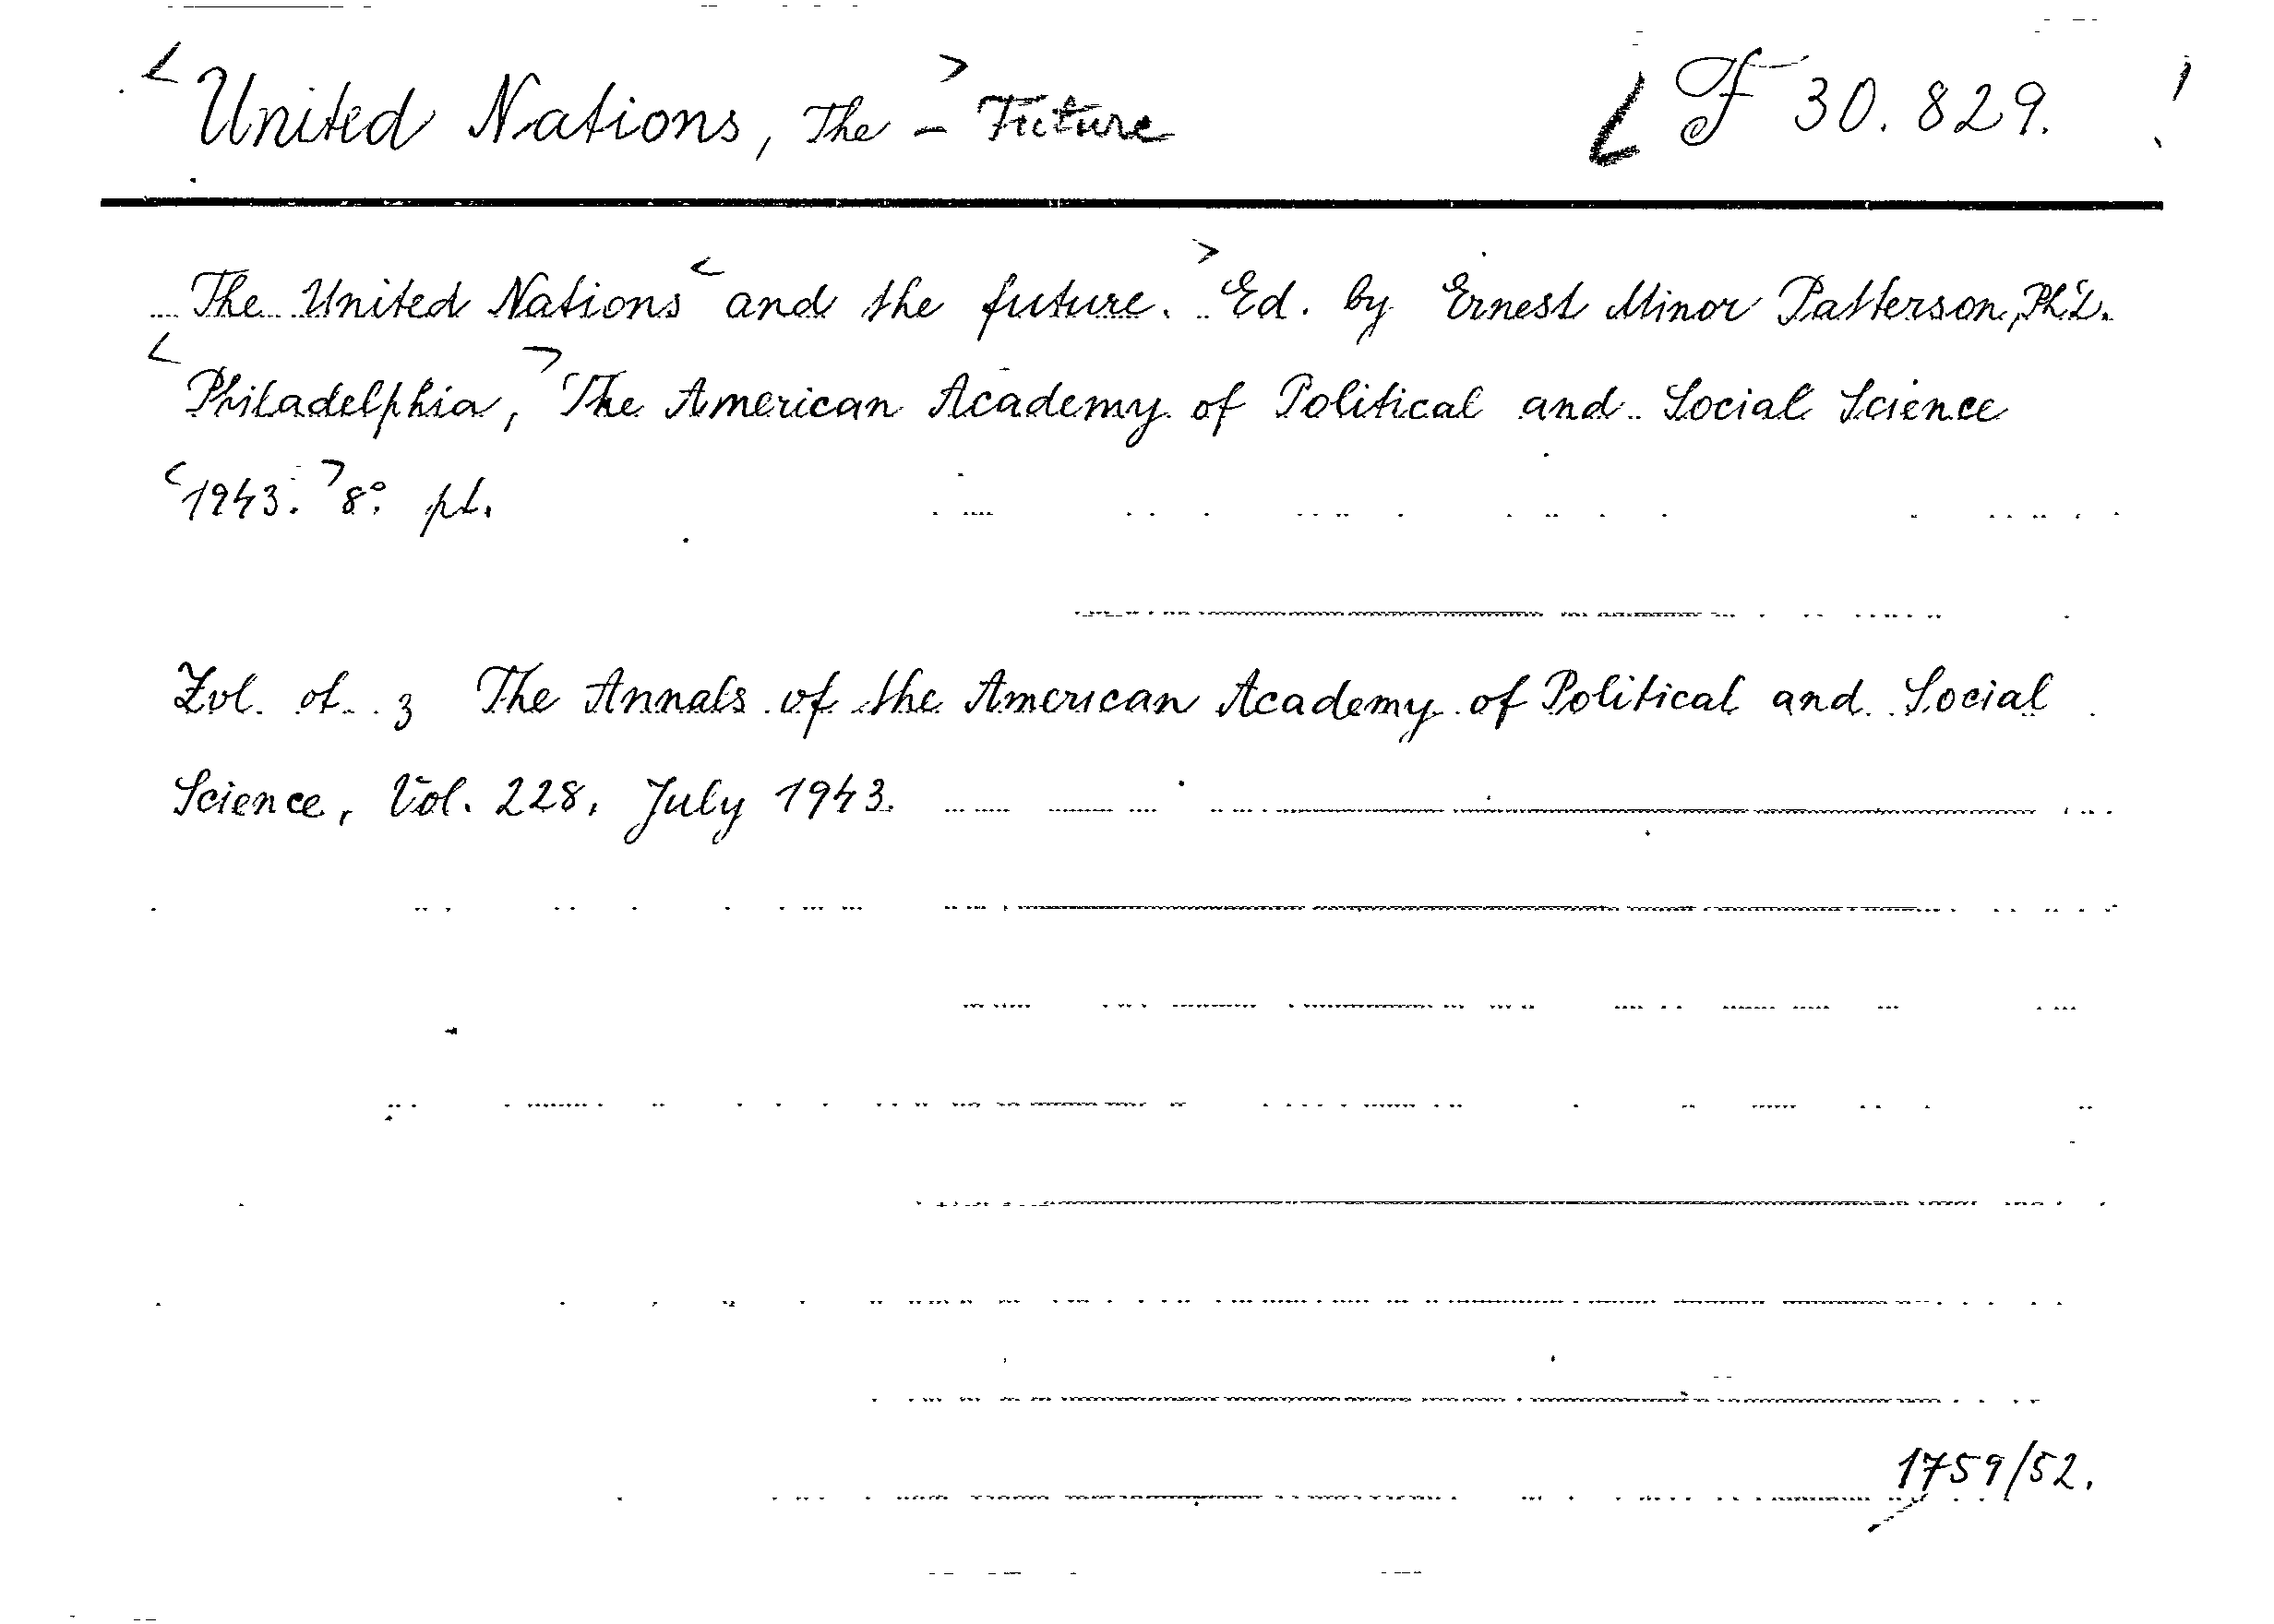 <United Nations, The> - Future [F 30.829. !
The United Nations <and the future.> Ed. by Ernest Minor Patterson, Ph.D.
<Philadelphia,> The American Academy of Political and Social Science
<1943.> 8°. pl.
Zvl. ot. z The Annals of the American Academy of Political and Social
Science, Vol. 228, July 1943.
1759/52.